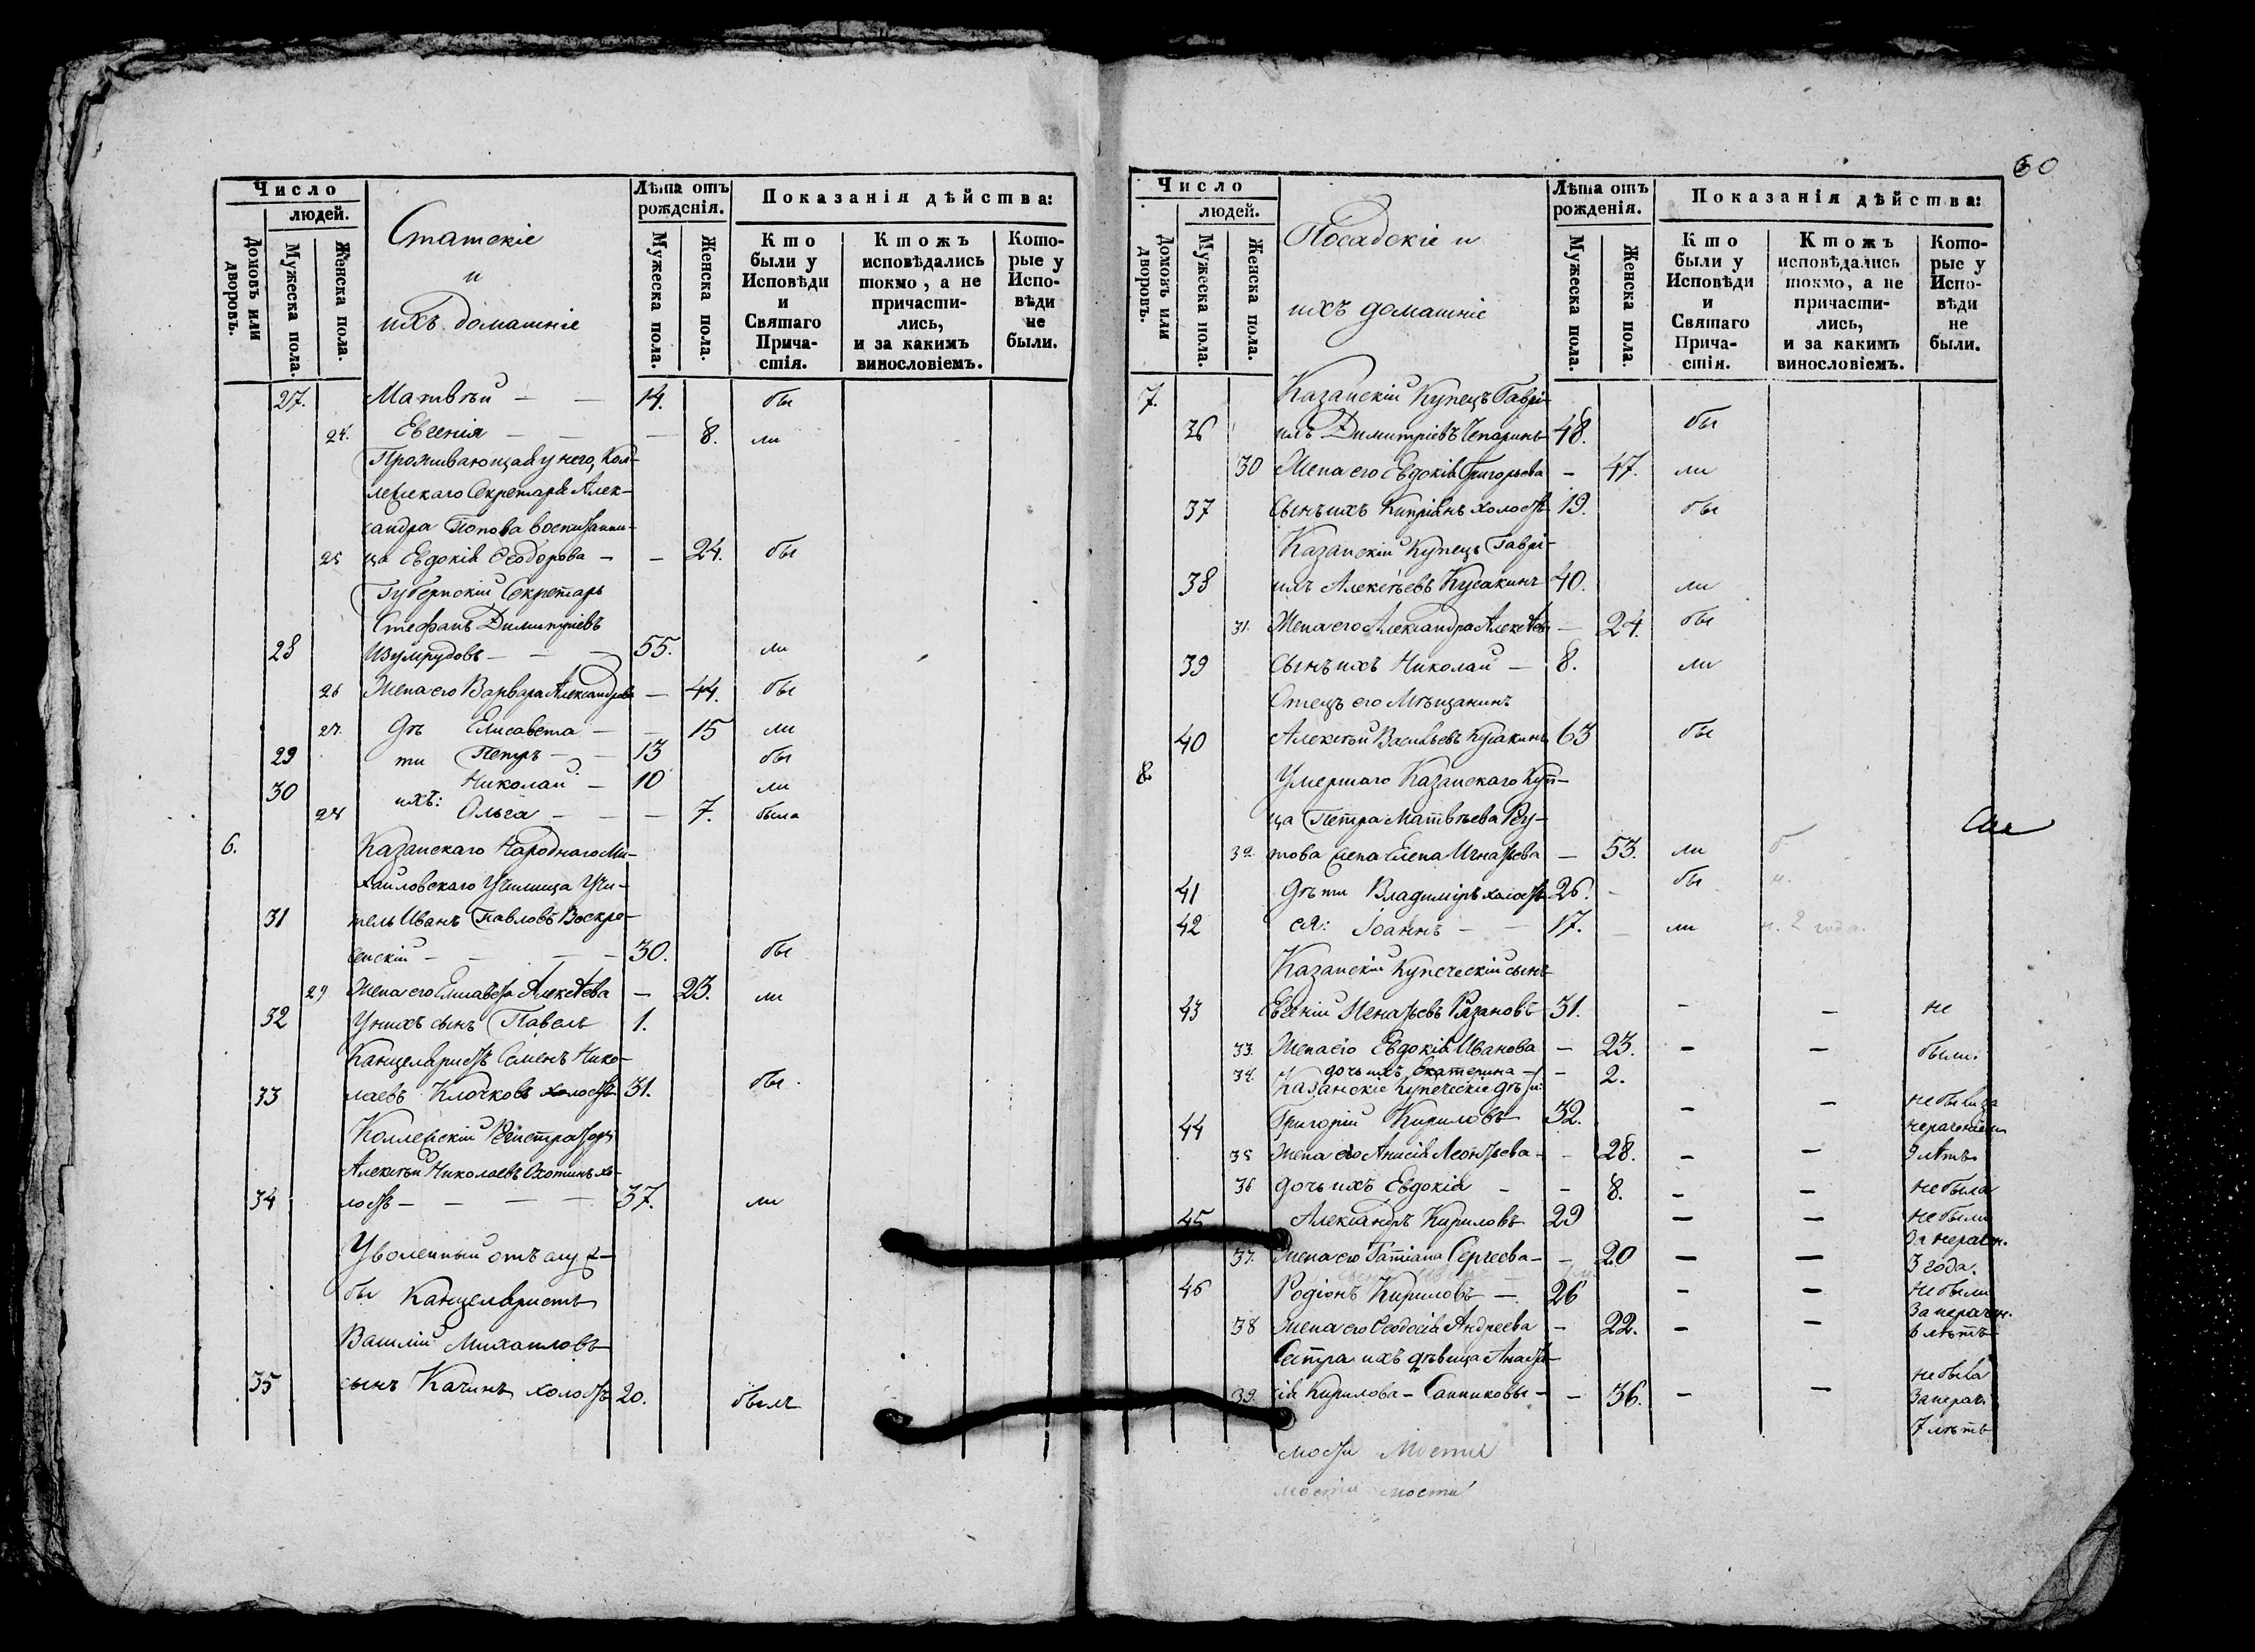 Число
людей.
Домовъ или дворовъ.
Мужеска пола.
Женска пола.
Статскіе
и
ихъ домашніе
Лѣта отъ рожденія.
Мужеска пола.
Женска пола.
Показанія дѣйства:
Кто были у Исповѣди и Святаго Причастія.
Ктожъ исповѣдались токмо, а не причастились, и за какимъ винословіемъ.
Которые у Исповѣди не были.
27. Матвѣй — — 14. бы
24. Евгенія — — — 8. ли
Проживающая у него, Кол-
лежскаго Секретаря Алек-
сандра Попова воспитанни-
25 ца Евдокія Ѳеодорова — — 24. бы
Губернскій Секретарь
Стефанъ Димитріевъ
28 Изумрудовъ — — — 55. ли
26 Жена его Варвара Александрова — 44. бы
27. Дѣ Елисавета — — 15 ли
29 ти Петръ — — 13 бы
30 Николай — 10 ли
28 ихъ: Ольга — — — 7. была
6. Казанскаго Народнаго Ми-
хайловскаго Училища Учи-
31 тель Иванъ Павловъ Воскре-
сенскій — — — — 30. бы
29 Жена его Елисавета Алексѣева — 23. ли
32 У нихъ сынъ Павелъ 1.
Канцеляристъ Семенъ Нико-
33 лаевъ Клочковъ холостъ 31. бы
Коллежскій Регистраторъ
Алексѣй Николаевъ Охотинъ хо-
34 лостъ — — — — 37. ли
Уволенный отъ служ-
бы Канцеляристъ
Василій Михаиловъ
35 сынъ Качинъ холостъ 20. былъ
60
Число
людей.
Домовъ или дворовъ.
Мужеска пола.
Женска пола.
Посадскіе и
ихъ домашніе
Лѣта отъ рожденія.
Мужеска пола.
Женска пола.
Показанія дѣйства:
Кто были у Исповѣди и Святаго Причастія.
Ктожъ исповѣдались токмо, а не причастились, и за какимъ винословіемъ.
Которые у Исповѣди не были.
7. Казанскій Купецъ Гаврі-
36 илъ Димитріевъ Чепаринъ 48. бы
30 Жена его Евдокія Григорьева — 47. ли
37 Сынъ ихъ Кипріанъ холостъ 19. бы
Казанскій Купецъ Гаврі-
38 илъ Алексѣевъ Кусакинъ 40. ли
31. Жена его Александра Алексѣева — 24. бы
39 Сынъ ихъ Николай — 8. ли
Отецъ его Мѣщанинъ
40 Алексѣй Васильевъ Кусакинъ 63 бы
8. Умершаго Казанскаго Куп-
ца Петра Матвѣева Реу-
32. това жена Елена Игнатьева — 53. ли
41 Дѣти Владиміръ холостъ 26. — бы
42 ея: Іоаннъ — — 17. — ли н. 2 года.
Казанскій Купеческій сынъ
43 Евгеній Игнатьевъ Рязановъ 31. — — не
33. Жена его Евдокія Иванова — 23. — — были.
34. дочь ихъ Екатерина — — 2.
Казанскіе Купеческіе дѣти:
44 Григорій Кириловъ 32. — — не были за нераченіемъ
35 Жена его Анисія Леонтьева — — 28. — — 9 лѣтъ
36 дочь ихъ Евдокія — — 8. — — не была
45 Александръ Кириловъ 29 — — не были за нерачен.
37. Жена его Татіана Сергеева — — 20 — — 3 года.
46 Родіонъ Кириловъ — 26 — — не были за нерачен.
38 Жена его Ѳеодосія Андреева — 22. — — 6 лѣтъ
Сестра ихъ дѣвица Анаста-
39. сія Кирилова — Санниковы — — 36. — — не была за нерач. 7 лѣтъ